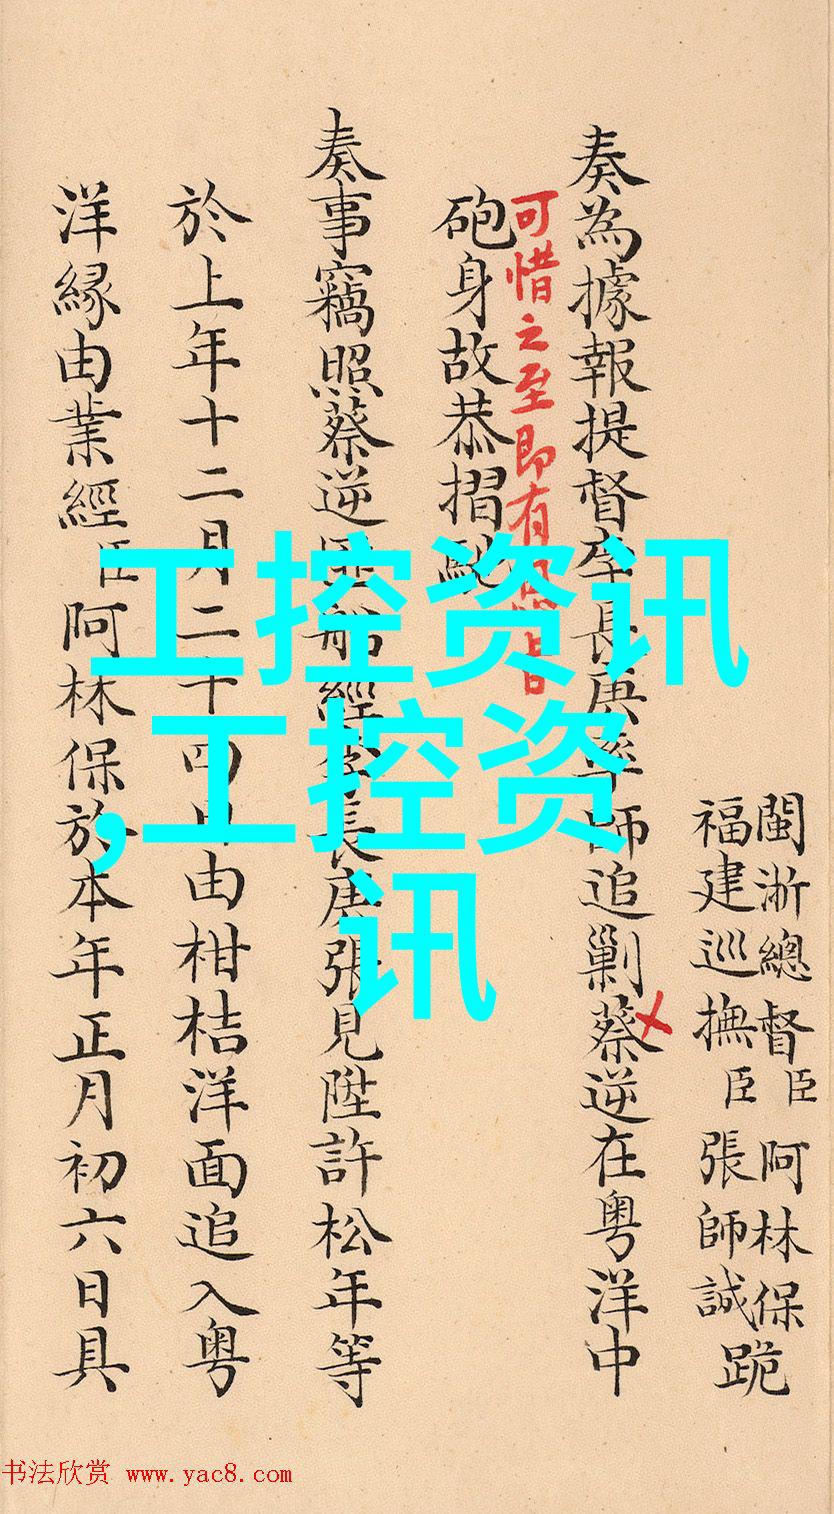 閩浙總督臣阿林保
福建巡撫臣張師誠跪
奏為據報提督李長庚率師追剿蔡逆在粤洋中
可惜之至即有恩旨
砲身故恭摺馳
奏事竊照蔡逆匪船經李長庚張見陞許松年等
於上年十二月二十四日由柑桔洋面追入粤
洋緣由業經臣阿林保於本年正月初六日具
工控资讯
,工控资
讯
书法欣赏 www.yac8.com